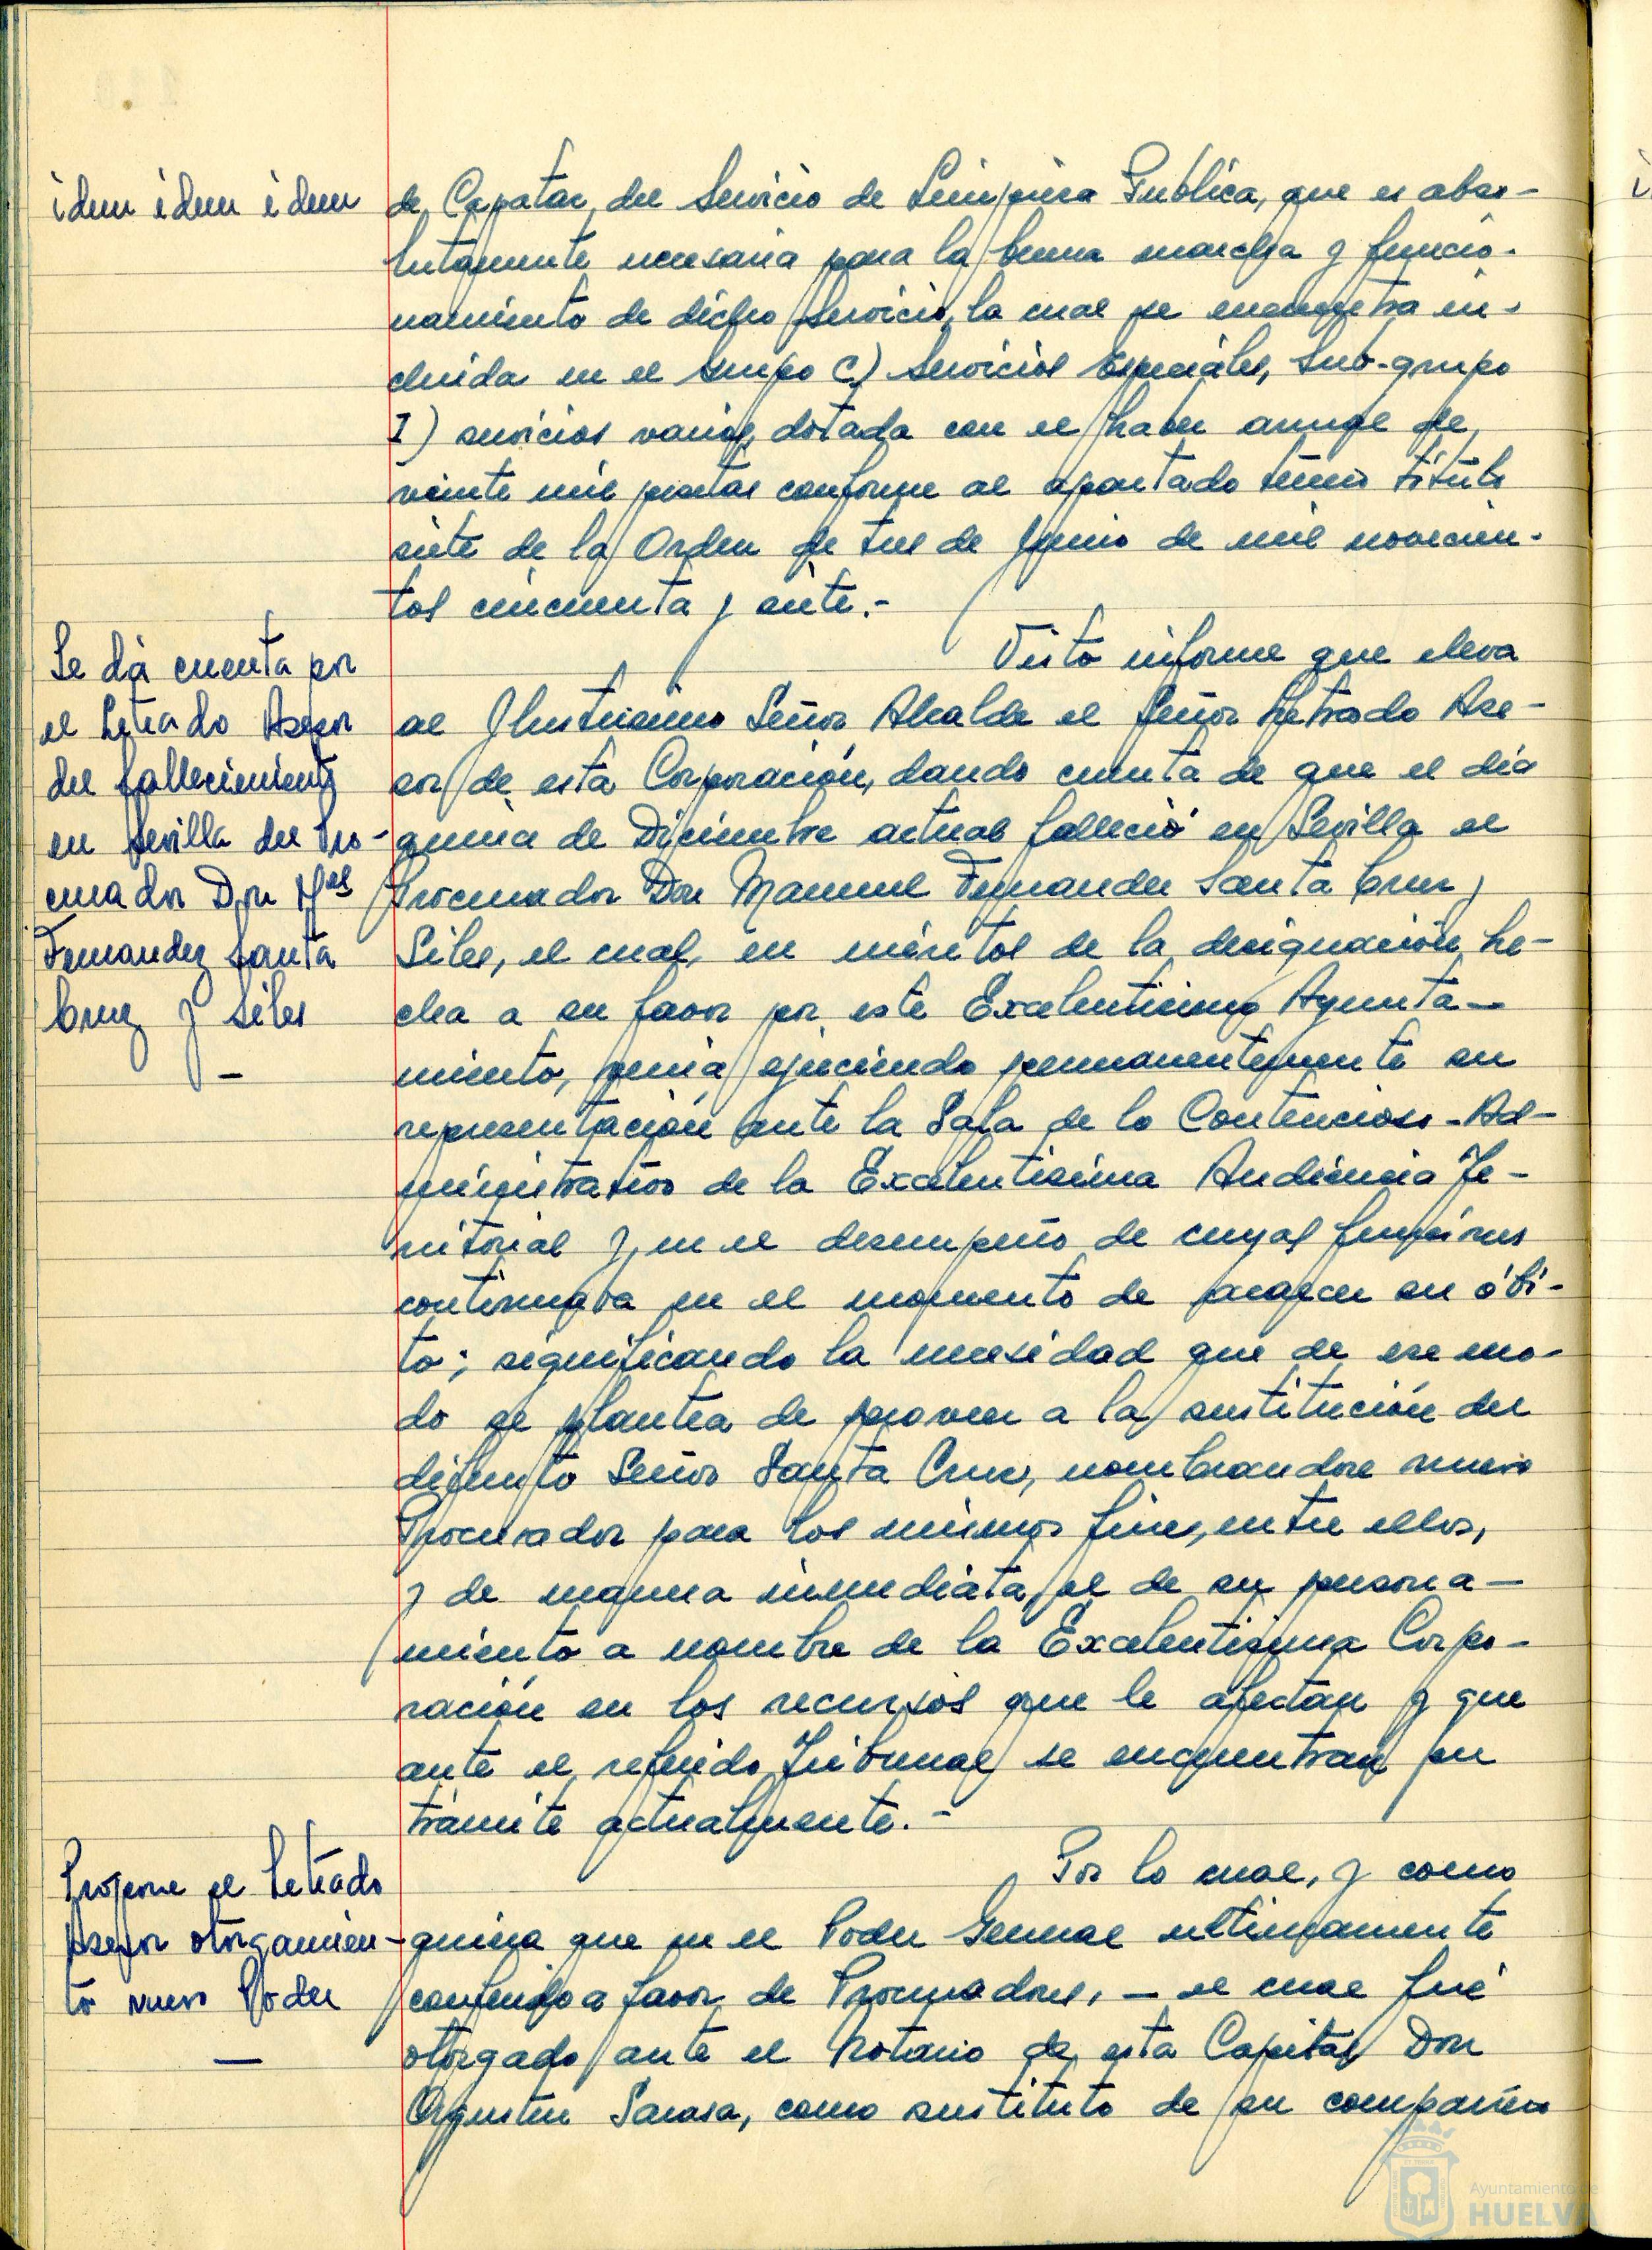 idem idem idem
de Capataz, del Servicio de Limpieza Publica, que es abso-
lutamente necesaria para la buena marcha y funcio-
namiento de dicho Servicio, la cual se encuentra in-
cluida en el Grupo C) Servicios Especiales, Sub-grupo
I) servicios varios, dotada con el haber anual de
veinte mil pesetas conforme al apartado tercero título
siete de la Orden de tres de Junio de mil novecien-
tos cincuenta y siete.-
Se dá cuenta por
el Letrado Asesor
del fallecimiento
en Sevilla del Pro-
curador Don Mel
Fernandez Santa
Cruz y Siles
Visto informe que eleva
al Ilustrisimo Señor Alcalde el Señor Letrado Ase-
sor de esta Corporación, dando cuenta de que el día
quince de Diciembre actual falleció en Sevilla el
Procurador Don Manuel Fernandez Santa Cruz y
Siles, el cual, en méritos de la designación he-
cha a su favor por este Excelentisimo Ayunta-
miento, venía ejerciendo permanentemente su
representación ante la Sala de lo Contencioso-Ad-
ministrativo de la Excelentisima Audiencia Te-
rritorial y, en el desempeño de cuyas funciones
continuaba en el momento de acaecer su óbi-
to; significando la necesidad que de ese mo-
do se plantea de proveer a la sustitución del
difunto Señor Santa Cruz, nombrandose nuevo
Procurador para los mismos fines, entre ellos,
y de manera inmediata, el de su persona-
miento a nombre de la Excelentisima Corpo-
ración en los recursos que le afectan y que
ante el referido Tribunal se encuentran en
trámite actualmente.-
Propone el Letrado
Asesor otorgamien-
to nuevo Poder
Por lo cual, y como
quiera que en el Poder General ultimamente
conferido a favor de Procuradores, - el cual fué
otorgado ante el Notario de esta Capital Don
Agustin Sarasa, como sustituto de su compañero
Ayuntamiento de
HUELVA